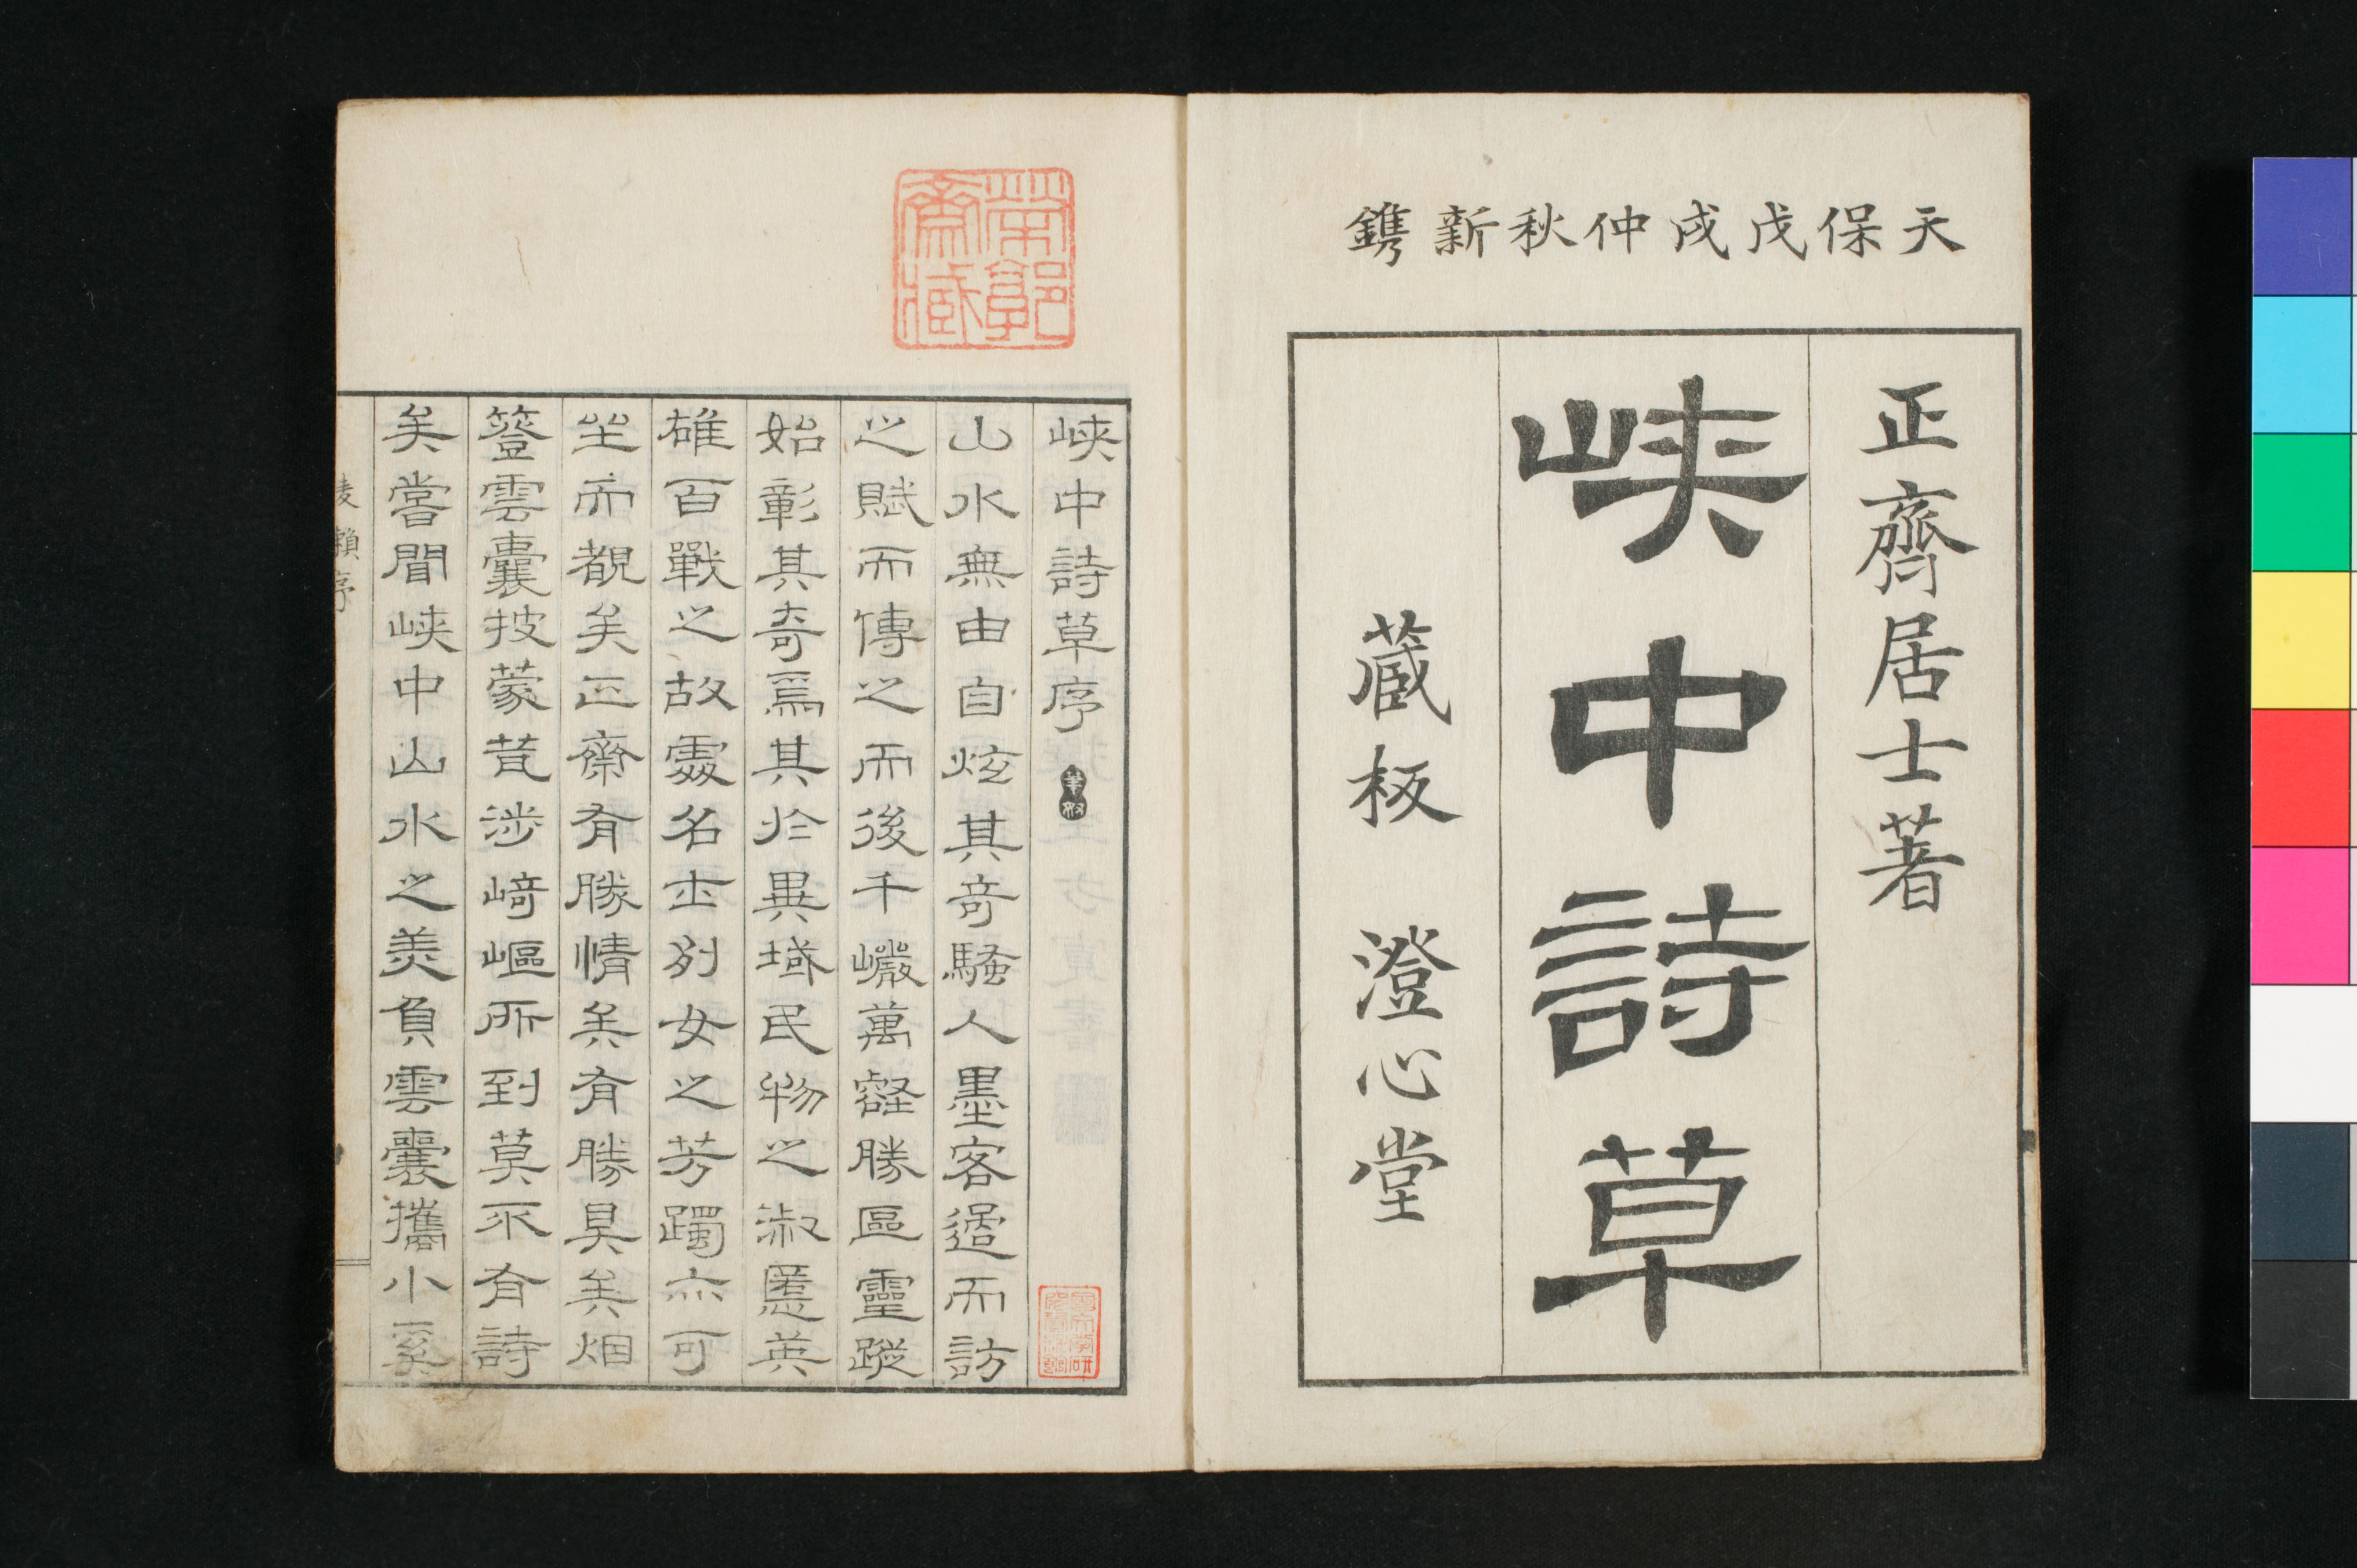 天保戊戌仲秋新鐫
正齋居士著
峡中詩草
蔵板 澄心堂
峡中詩草序
山水無由自炫其奇騷人墨客過而訪
之賦而傳之而後千巖萬壑勝區靈蹤
始彰其奇焉其於異域民物之淑慝英
雄百戰之故處名士列女之芳躅亦可
坐而覩矣正齋有勝情矣有勝具矣烟
簦雲囊披蒙茸涉崎嶇所到莫不有詩
矣嘗聞峡中山水之美負雲囊攜小奚